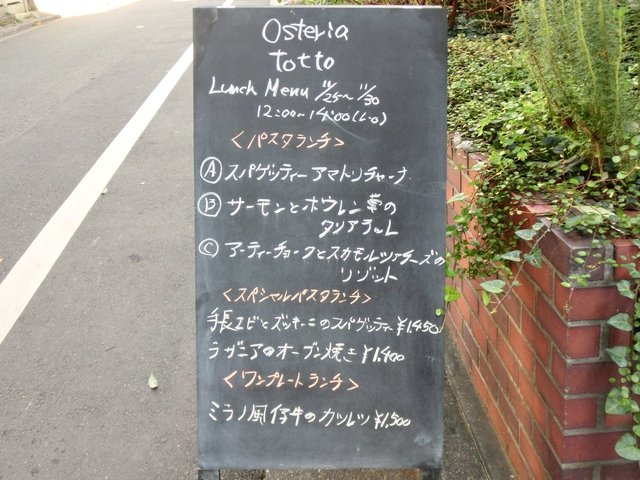 Osteria
Totto
Lunch Menu 11/25〜11/30
12:00〜14:00(L.O)
<パスタランチ>
Ⓐ スパゲッティーアマトリチャーナ
Ⓑ サーモンとホウレン草の
タリアテッレ
Ⓒ アーティーチョークとスカモルツァチーズの
リゾット
<スペシャルパスタランチ>
手長エビとズッキーニのスパゲッティー ¥1,450
ラザニアのオーブン焼き ¥1,400
<ワンプレートランチ>
ミラノ風仔牛のカツレツ ¥1,500